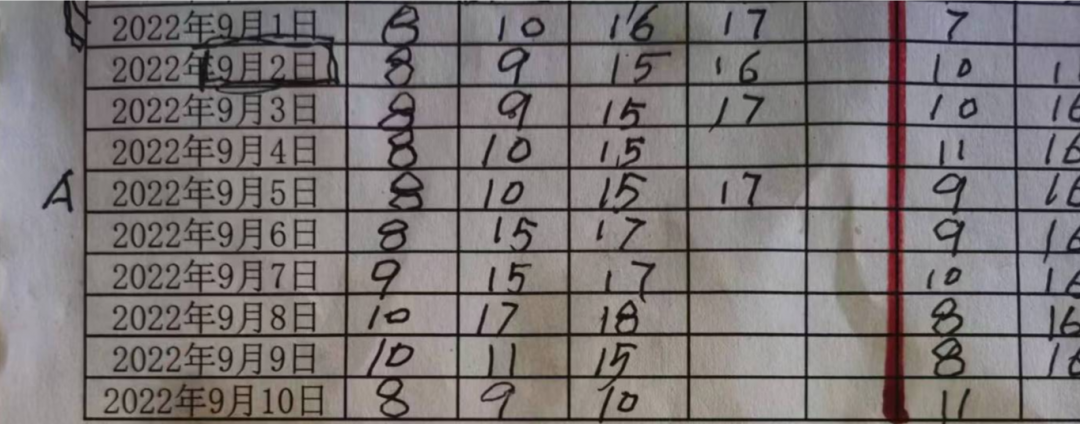 2022年9月1日 8 10 16 17 7
2022年9月2日 8 9 15 16 10
2022年9月3日 8 9 15 17 10 16
2022年9月4日 8 10 15 11 16
A 2022年9月5日 8 10 15 17 9 16
2022年9月6日 8 15 17 9 16
2022年9月7日 9 15 17 10 16
2022年9月8日 10 17 18 8 16
2022年9月9日 10 11 15 8
2022年9月10日 8 9 10 11